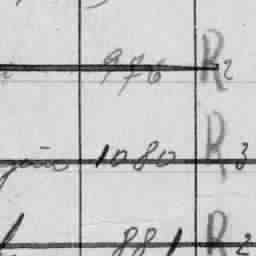 976 R2
1080 R3
881 R2